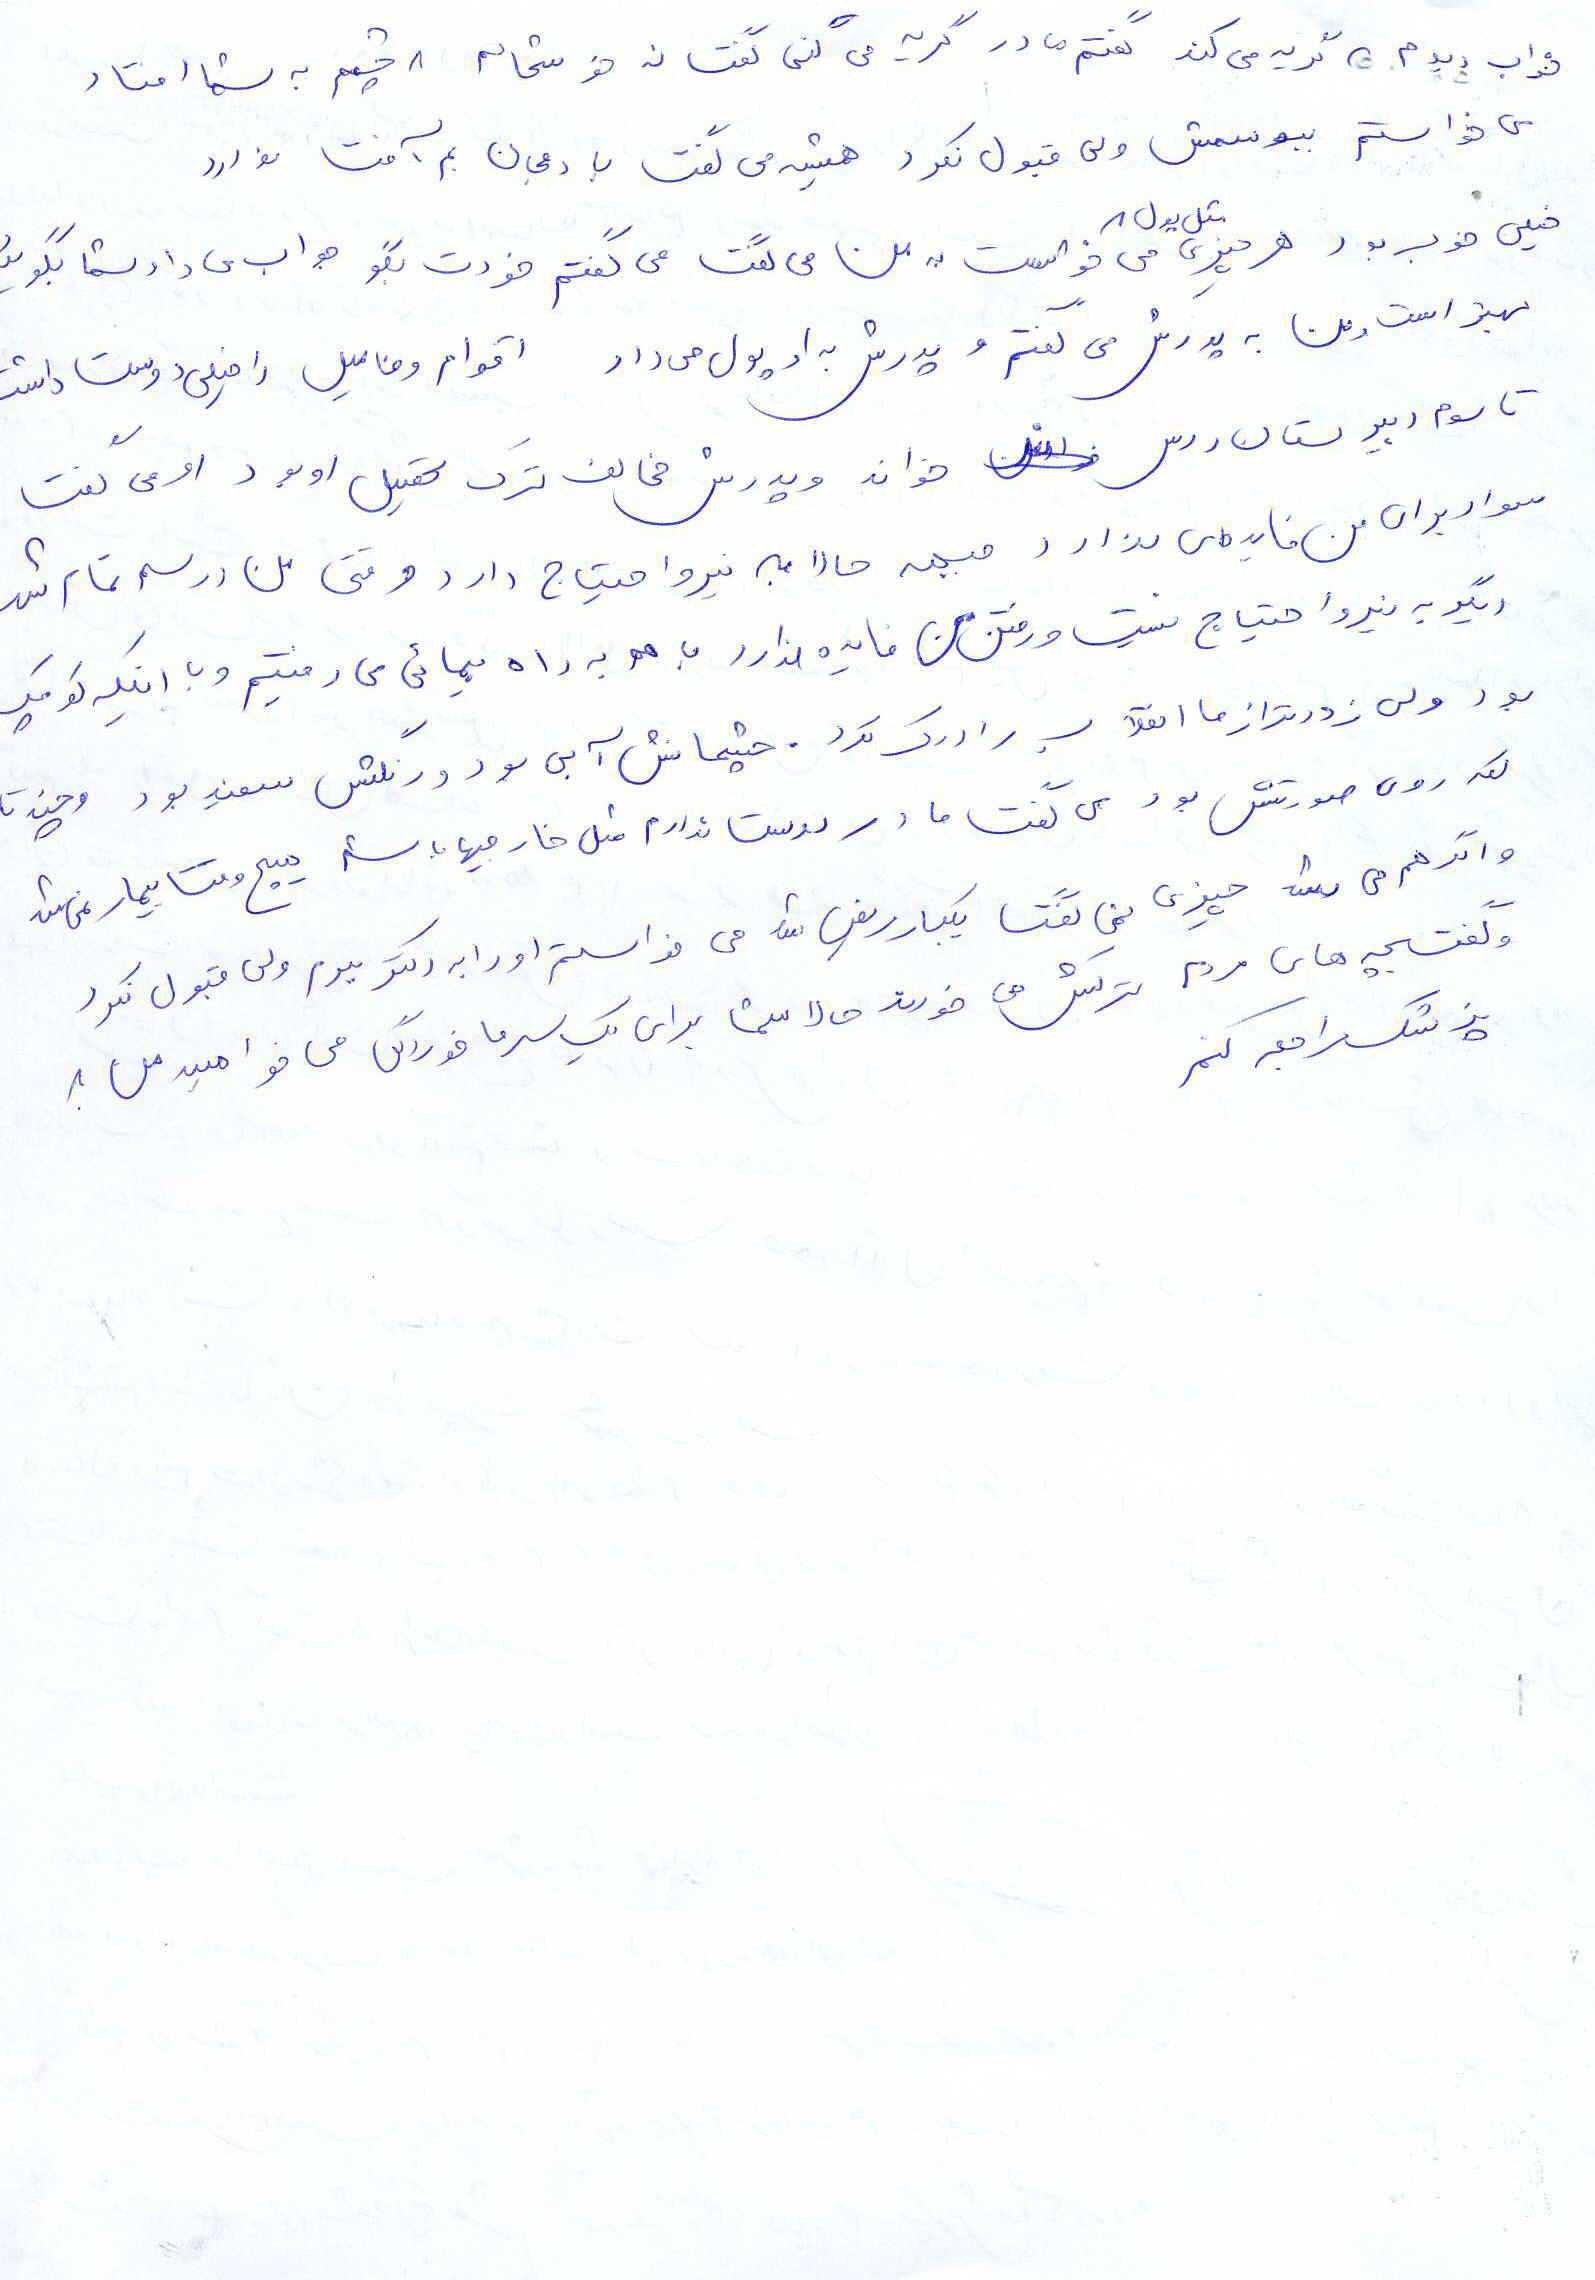 خواب دیدم گریه می کند گفتم مادر گریه می کنی گفت نه خوشحالم چشمم به شما افتاد
می خواستم ببوسمش ولی قبول نکرد همیشه می گفت بادمجان بم آفت ندارد
خیلی خوب بود هر چیزی مثل پول می خواست به من می گفت می گفتم خودت بگو جواب می داد شما بگوئید
بهتر است و من به پدرش می گفتم و پدرش به او پول می داد اقوام و فامیل را خیلی دوست داشت
تا سوم دبیرستان درس خواند و پدرش مخالف ترک تحصیل او بود او می گفت
سواد برای من فایده ای ندارد جبهه حالا به نیرو احتیاج دارد وقتی من درسم تمام شد
دیگر به نیرو احتیاج نیست و رفتن من فایده ندارد با هم به راه پیمائی می رفتیم و با اینکه کوچک
بود ولی زودتر از ما انقلاب را درک کرد . چشمانش آبی بود و رنگش سفید بود و چند تا
لکه روی صورتش بود می گفت مادر دوست ندارم مثل خارجیها باشم هیچ وقت بیمار نمی شد
و اگر هم می شد چیزی نمی گفت یکبار مریض شد می خواستم او را به دکتر ببرم ولی قبول نکرد
و گفت بچه های مردم ترکش می خورند حالا شما برای یک سرماخوردگی می خواهید من به
پزشک مراجعه کنم